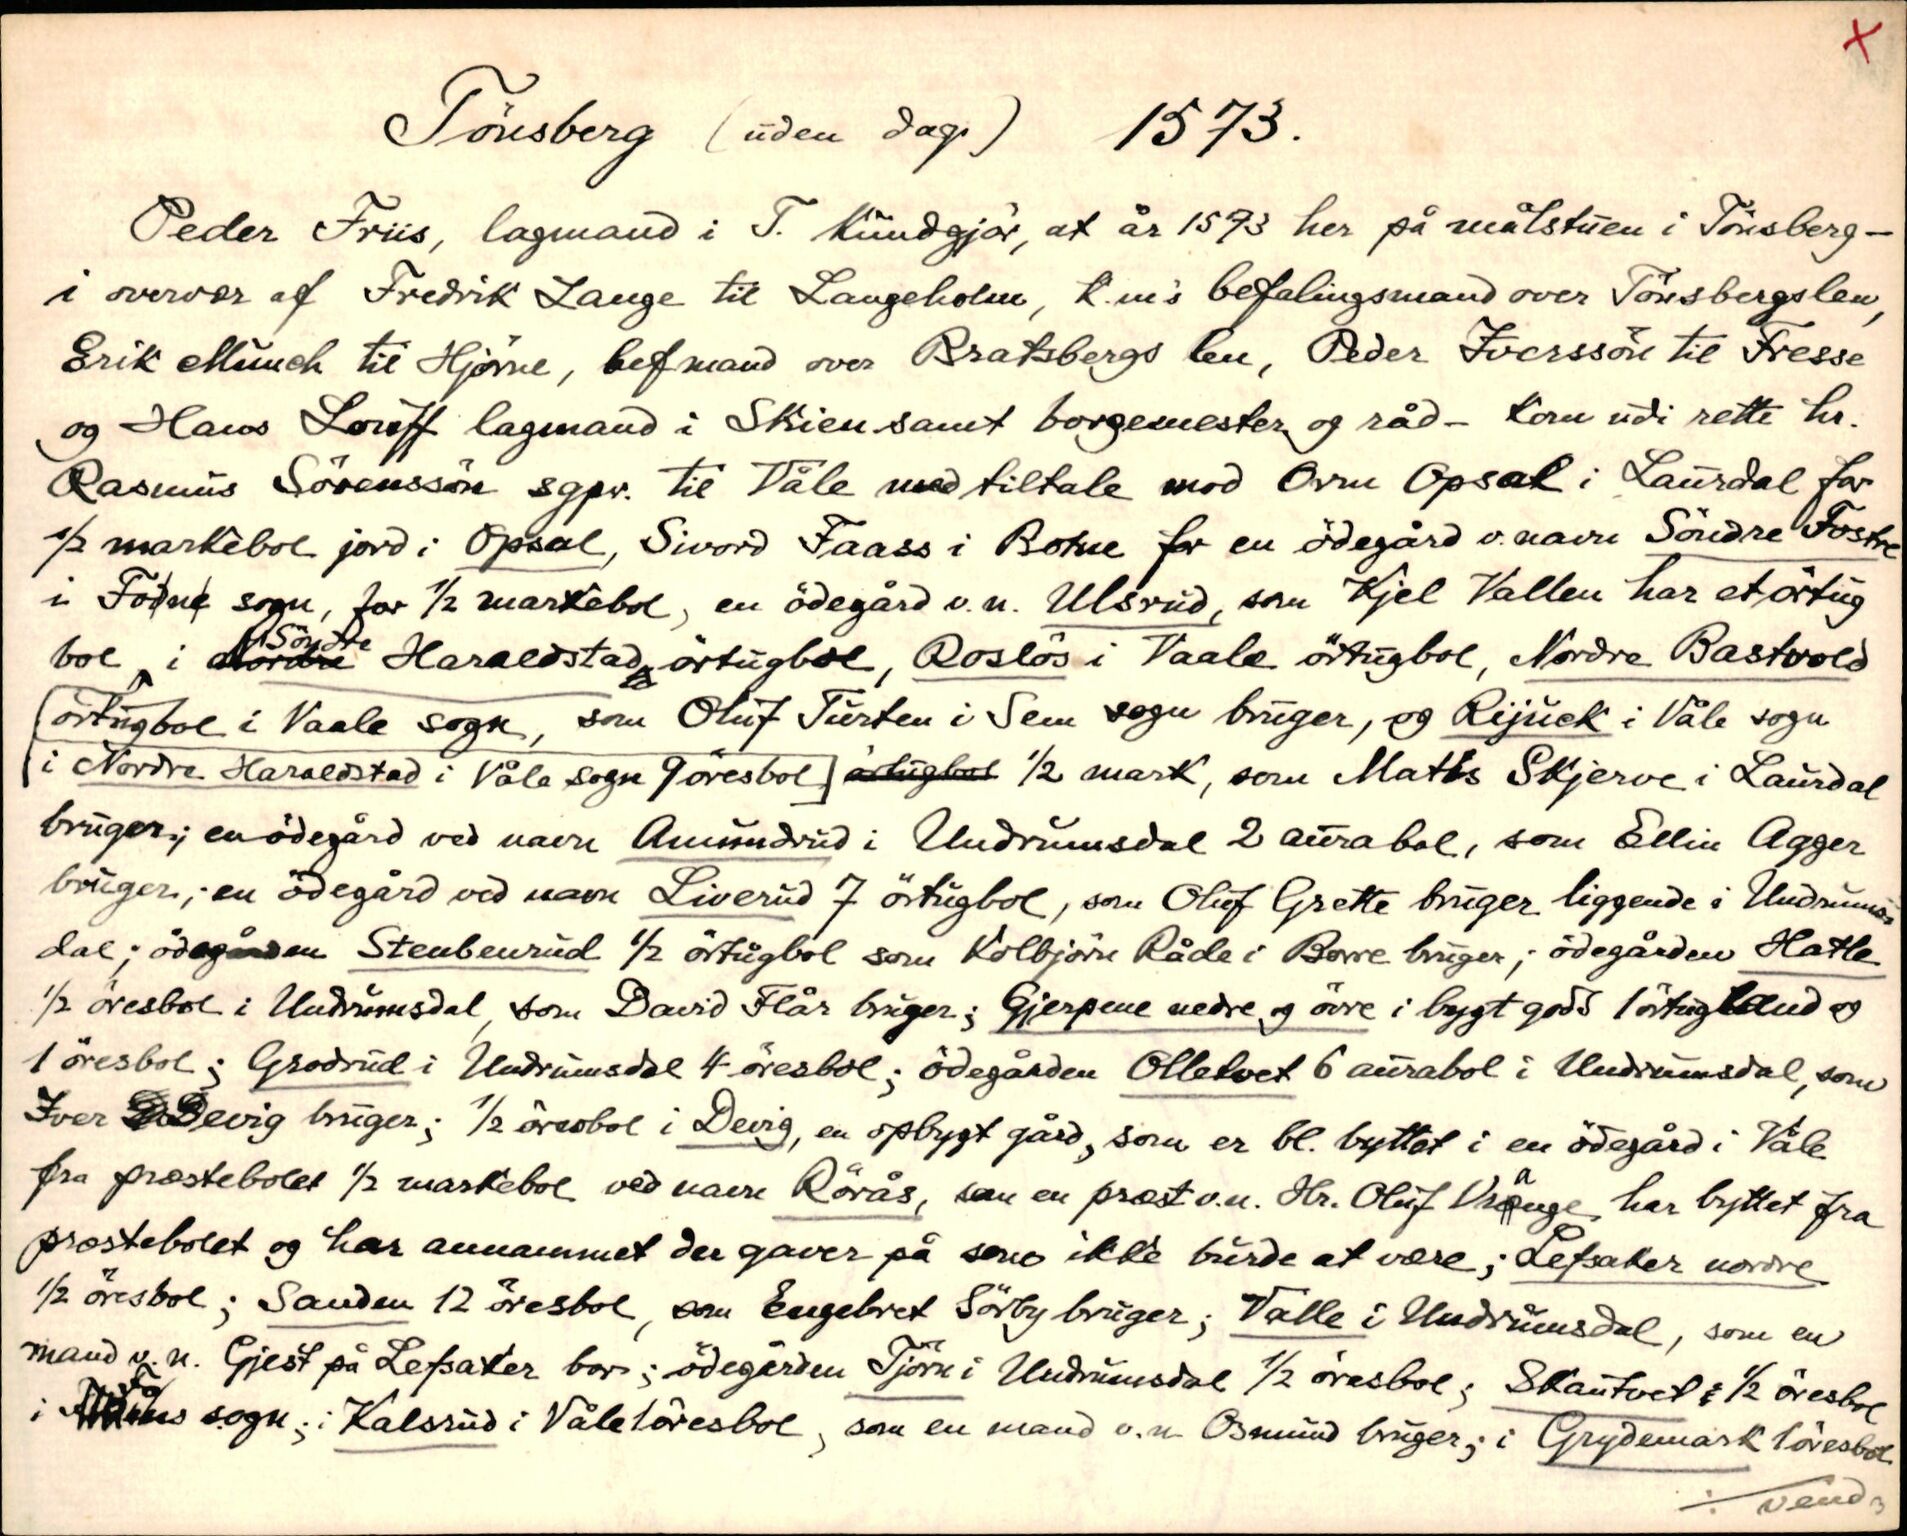 X
Tönsberg (uden dag.) 1573.
Peder Friis, lagmand i T. Kundgjör, at år 1573 her på målstuen i Tönsberg –
i overvær af Fredrik Lange til Langeholm, k.m's befalingsmand over Tönsbergslen,
Erik Munch til Hjörne, befmand over Bratsbergs len, Peder Iverssön til Fresse
og Hans Louff lagmand i Skien samt borgemester og råd – kom udi rette hr.
Rasmus Sörenssön sgpr. til Våle med tiltale mod Orm Opsal i Laurdal for
1/2 markebol jord i Opsal, Sivord Faass i Botne for en ödegård v. navn Söndre Fostre
i sogn, for 1/2 markebol, en ödegård v.n. Ulsrud, som Kjel Vallen har et örtug
bol, i Nordre Söndre Haraldstad örtugbol, Roslös i Vaale örtugbol, Nordre Bastvold
örtugbol i Vaale sogn, som Oluf Turten i Sem sogn bruger, og Rijuck i Våle sogn
[i Nordre Haraldstad i Våle sogn 9 öresbol] örtugbol 1/2 mark, som Matis Skjerve i Laurdal
bruger; en ödegård ved navn Amundrud i Undrumsdal 2 aurabol, som Ellin Agger
bruger; en ödegård ved navn Liverud 7 örtugbol, som Oluf Grette bruger liggende i Undrums
dal; ödegården Stenbenrud 1/2 örtugbol som Kolbjörn Råde i Borre bruger; ödegården Hatle
1/2 öresbol i Undrumsdal, som David Flår bruger; Gjerpene nedre og övre i bygt gods 1 örtugland og
1 öresbol; Grodrud i Undrumsdal 4 öresbol; ödegården Olletvet 6 aurabol i Undrumsdal, som
Iver Devig bruger; 1/2 öresbol i Devig, en opbygt gård, som er bl. byttet i en ödegård i Våle
fra præstebolet 1/2 markebol ved navn Rörås, som en præst v.n. Hr. Oluf Vränge har byttet fra
præstebolet og har annammet der gaver på som ikke burde at være; Lefsaker nordre
1/2 öresbol; Sanden 12 öresbol, som Engebret Sörby bruger; Valle i Undrumsdal, som en
mand v.n. Gjest på Lefsaker bor; ödegården Tjörn i Undrumsdal 1/2 öresbol; Skautvet i 1/2 öresbol
i sogn; i Kalsrud i Våle 1 öresbol, som en mand v.n. Osmund bruger; i Grydemark 1 öresbol
÷ vend